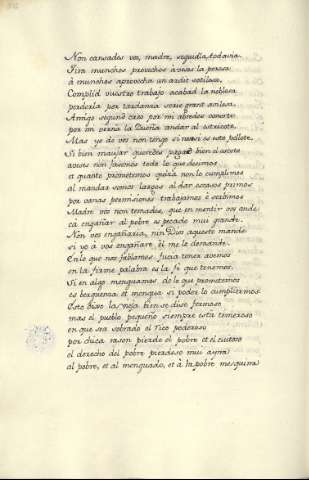 Non cansades vos, madre, seguidla, todavia.
Tira munchos provechos à vesas la peresa
à munchos aprovecha un ardit sotilesa.
Complid vuestro trabajo acabad la noblesa
perderla por tardanza serie grant avilesa.
Amigo segund creo por mi abredes conorte
por mi verna la Dueña andar al estricote
Mas yo de vos non tengo si non es este pellote,
Si bien manjar queredes pagad bien el escote
aveces non fasemos todo lo que desimos
et quanto prometemos quiza non lo cumplimos
al mandar somos largos al dar escasos primos
por vanas promisiones trabajamos é servimos
Madre vos non temades, que en mentir vos ande
ca engañar al pobre es pecado muy grande.
Non vos engañaria, nin Dios aqueste mande
si yo à vos engañare, él me lo demande.
En lo que nos fablamos, fucia tener avemos
en la firme palabra es la fé que tenemos.
Si en algo menguamos de lo que prometemos
es berguenza et mengua si poder lo cumplieremos
Este diso la vieja bien se diso fermoso
mas el pueblo pequeño siempre esta temeroso
en que sea sobrado el rico poderoso
por chica rason pierde el pobre et el cuitoso
el derecho del pobre pierdese muy ayna
al pobre, et al menguado, et à la pobre mesquina